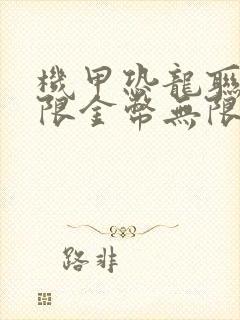 機甲恐龍聯
限金幣無限
路非